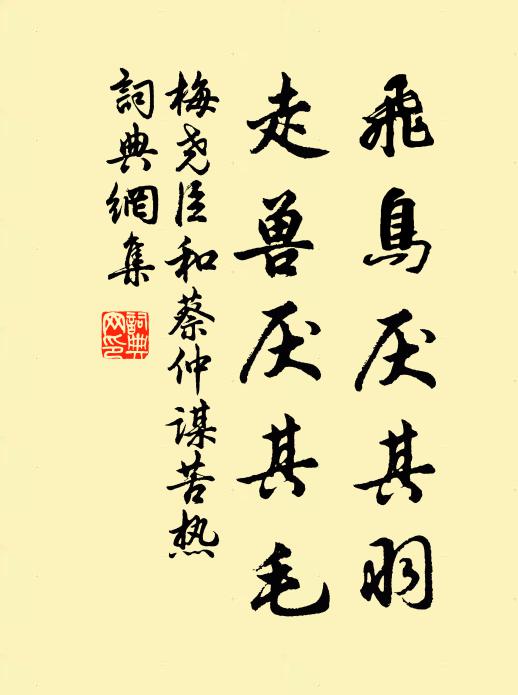 飛鳥厌其羽
走兽厌其毛
梅尧臣和蔡仲謀苦热
詞典網集
詞典网印